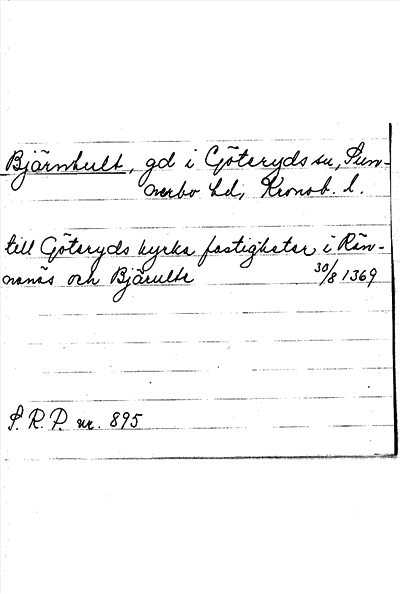 Bjärnhult, gd i Göteryds sn, Sun-
nerbo hd, Kronob. l.
till Göteryds kyrka fastigheter i Rän-
nanäs och Bjärulte 30/8 1369
S.R.P. nr. 895